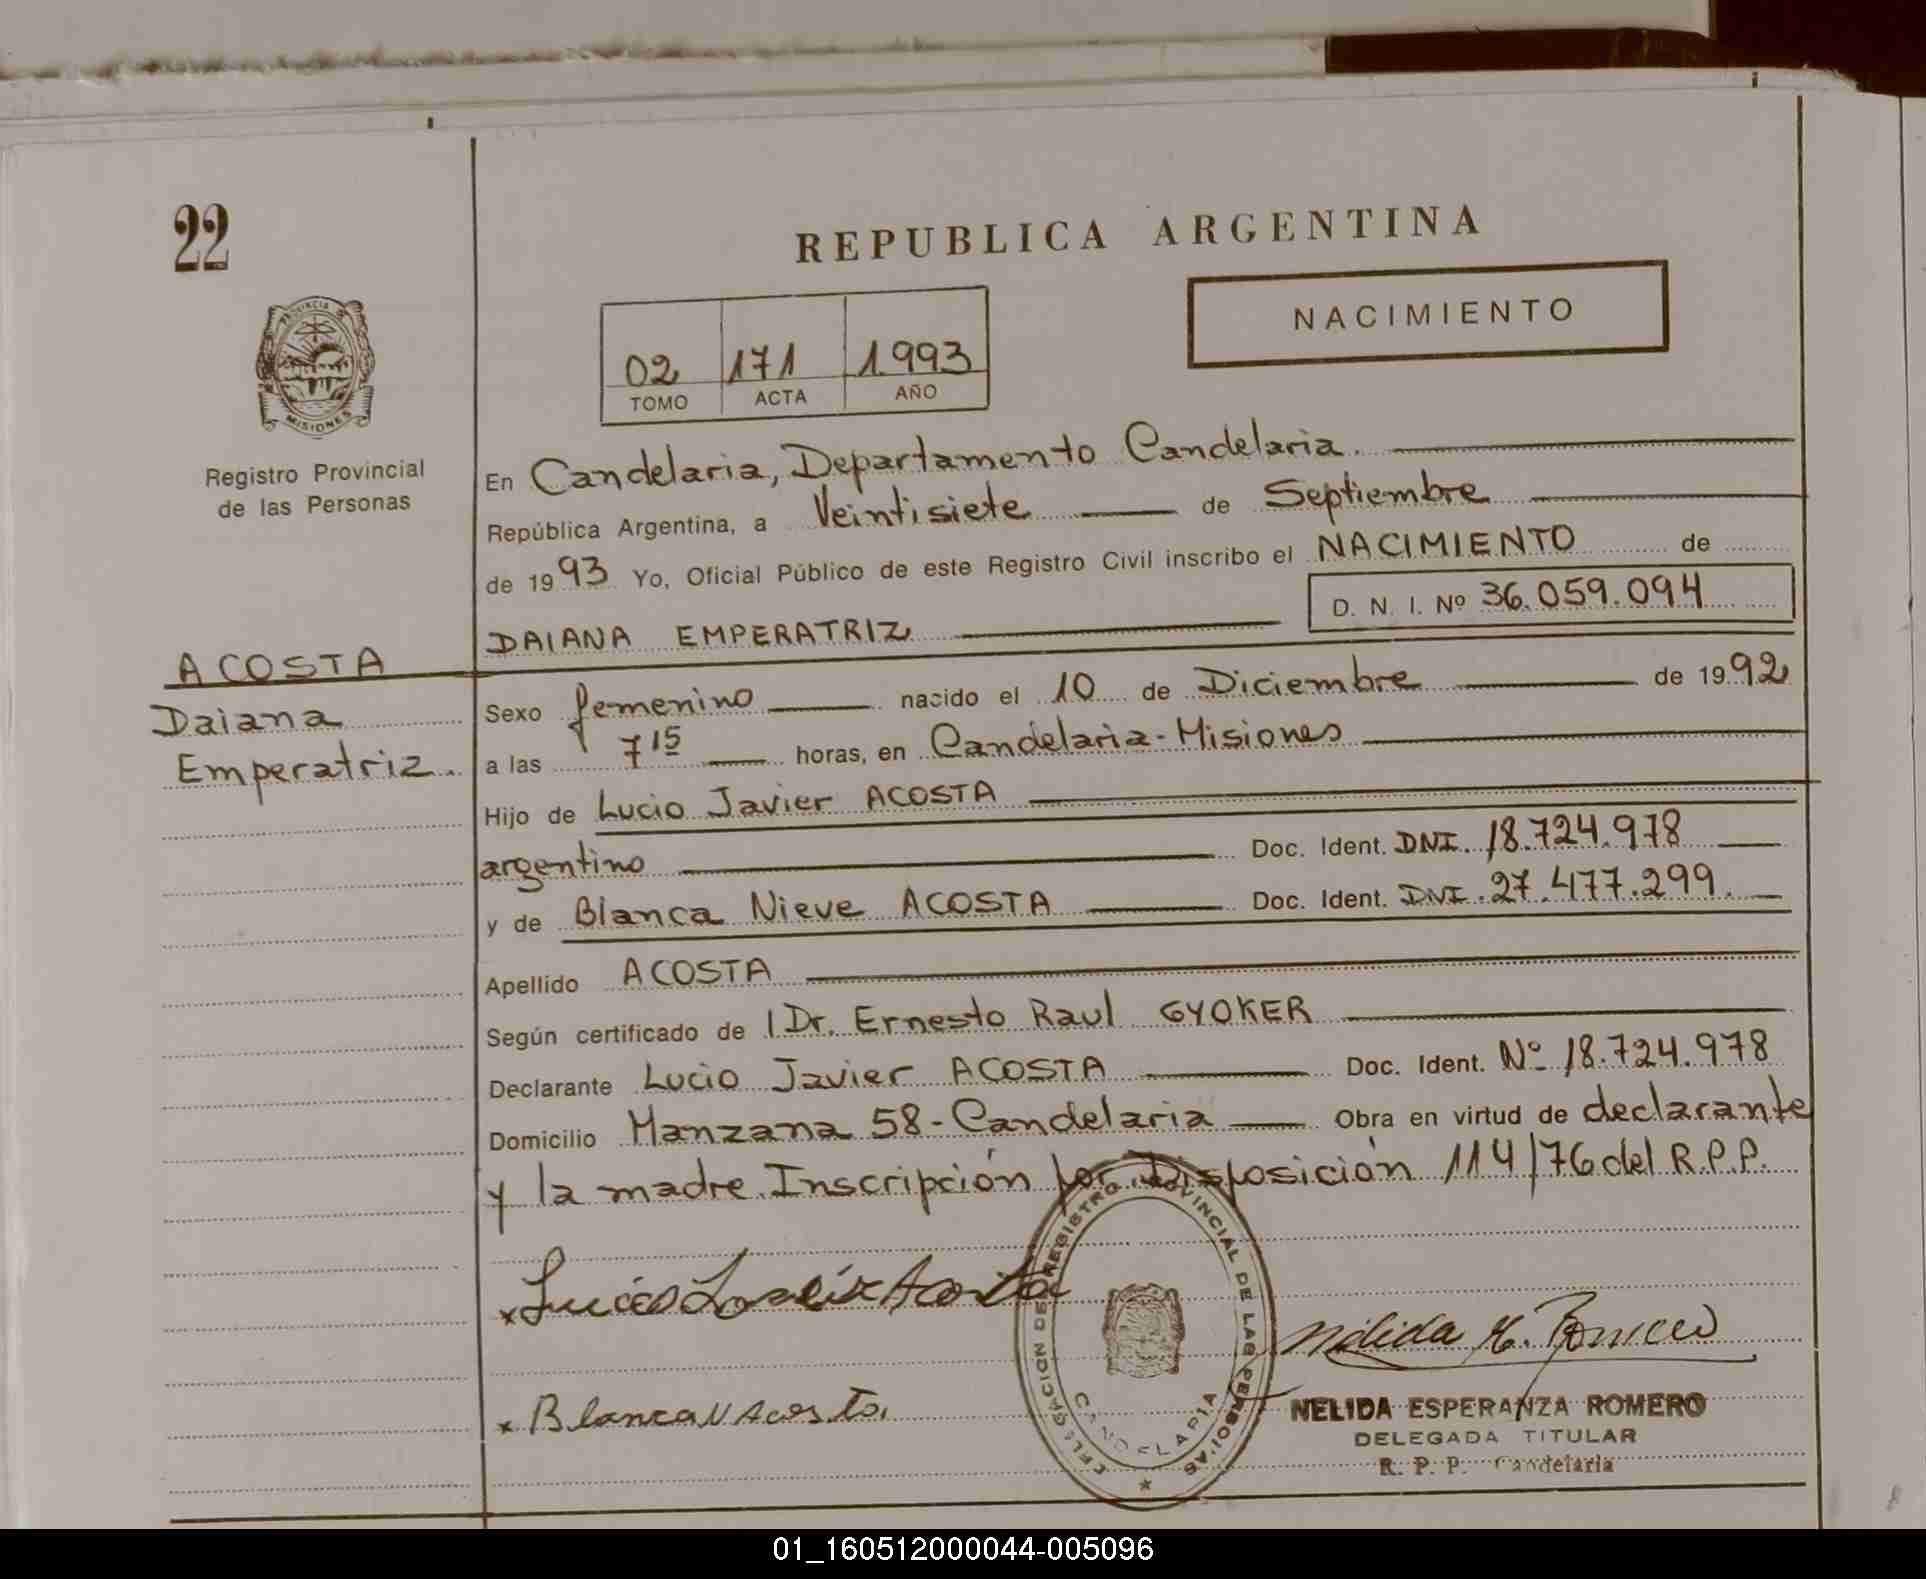 22
REPUBLICA ARGENTINA
NACIMIENTO
02 171 1.993
TOMO ACTA AÑO
PROVINCIA DE
MISIONES
Registro Provincial
de las Personas
En Candelaria, Departamento Candelaria.
República Argentina, a Veintisiete de Septiembre
de 1993 Yo, Oficial Público de este Registro Civil inscribo el NACIMIENTO de
D. N. I. Nº 36.059.094
DAIANA EMPERATRIZ
ACOSTA
Daiana
Emperatriz.
Sexo femenino nacido el 10 de Diciembre de 1992
a las 7 15 horas, en Candelaria-Misiones
Hijo de Lucio Javier ACOSTA
argentino Doc. Ident. DNI. 18.724.978
y de Blanca Nieve ACOSTA Doc. Ident. DNI. 27.477.299.
Apellido ACOSTA
Según certificado de Dr. Ernesto Raul GYOKER
Declarante Lucio Javier ACOSTA Doc. Ident. Nº 18.724.978
Domicilio Manzana 58-Candelaria Obra en virtud de declarante
y la madre. Inscripción por Disposición 114/76 del R.P.P.
DELEGACION DE REGISTRO PROVINCIAL DE LAS PERSONAS
CANDELARIA
Blanca N Acosta.
NELIDA ESPERANZA ROMERO
DELEGADA TITULAR
R. P. P. Candelaria
01_160512000044-005096